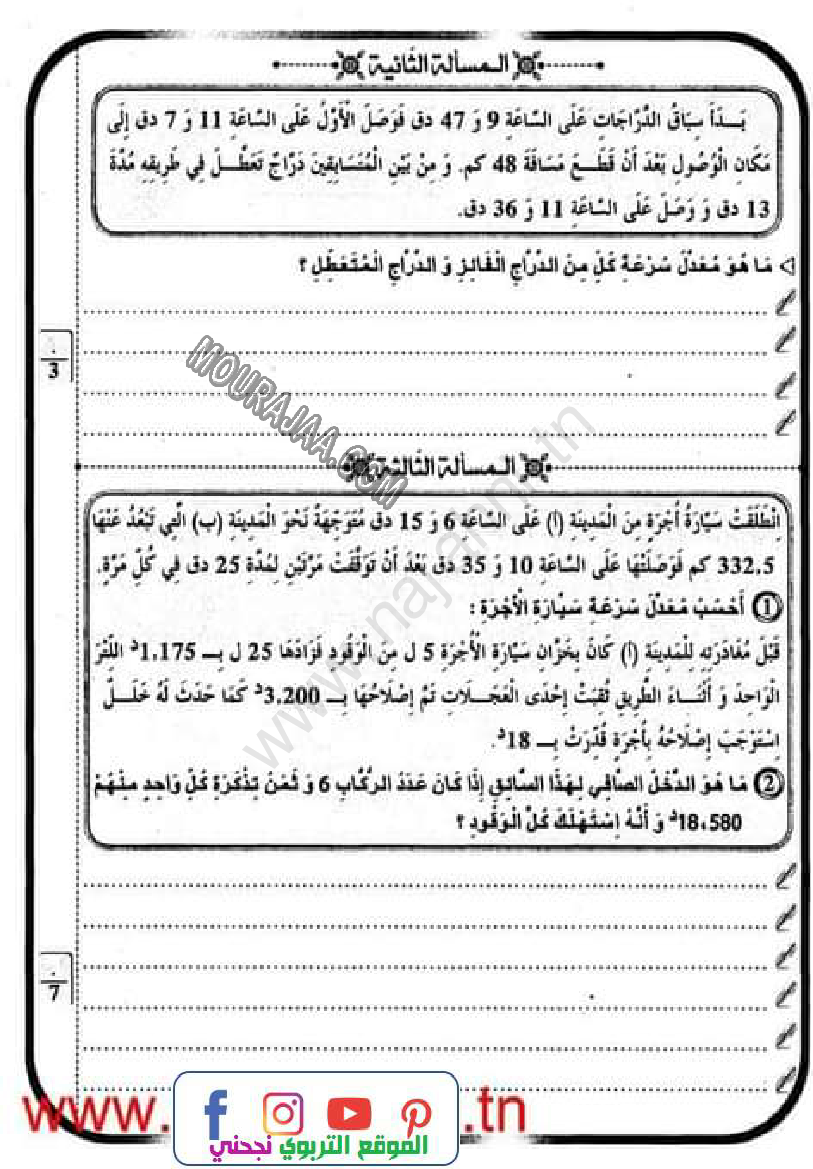 الـمسألة الثانية
بَـدَأَ سِبَاقُ الدَّرَّاجَاتِ عَلَى السَّاعَةِ 9 وَ 47 دق فَوَصَلَ الْأَوَّلُ عَلَى السَّاعَةِ 11 وَ 7 دق إِلَى
مَكَانِ الْوُصُولِ بَعْدَ أَنْ قَطَعَ مَسَافَةَ 48 كم. وَ مِنْ بَيْنِ الْمُتَسَابِقِينَ دَرَّاجٌ تَعَطَّلَ فِي طَرِيقِهِ مُدَّةَ
13 دق وَ وَصَلَ عَلَى السَّاعَةِ 11 وَ 36 دق.
مَا هُوَ مُعَدَّلُ سُرْعَةِ كُلٍّ مِنَ الدَّرَّاجِ الْفَائِزِ وَ الدَّرَّاجِ الْمُتَعَطِّلِ ؟
3
MOURAJAA.COM
الـمسألة الثالثة
اِنْطَلَقَتْ سَيَّارَةُ أُجْرَةٍ مِنَ الْمَدِينَةِ (أ) عَلَى السَّاعَةِ 6 وَ 15 دق مُتَوَجِّهَةً نَحْوَ الْمَدِينَةِ (ب) الَّتِي تَبْعُدُ عَنْهَا
332.5 كم فَوَصَلَتْهَا عَلَى السَّاعَةِ 10 وَ 35 دق بَعْدَ أَنْ تَوَقَّفَتْ مَرَّتَيْنِ لِمُدَّةِ 25 دق فِي كُلِّ مَرَّةٍ.
1 أَحْسُبُ مُعَدَّلَ سُرْعَةِ سَيَّارَةِ الْأُجْرَةِ :
قَبْلَ مُغَادَرَتِهِ لِلْمَدِينَةِ (أ) كَانَ بِخَزَّانِ سَيَّارَةِ الْأُجْرَةِ 5 ل مِنَ الْوَقُودِ فَزَادَهَا 25 ل بِـ 1.175د اللِّتْرَ
الْوَاحِدَ وَ أَثْنَاءَ الطَّرِيقِ ثُقِبَتْ إِحْدَى الْعَجَلَاتِ تَمَّ إِصْلَاحُهَا بِـ 3.200د كَمَا حَدَثَ لَهُ خَلَلٌ
اِسْتَوْجَبَ إِصْلَاحُهُ بِأُجْرَةٍ قُدِّرَتْ بِـ 18د.
2 مَا هُوَ الدَّخْلُ الصَّافِي لِهَذَا السَّائِقِ إِذَا كَانَ عَدَدُ الرُّكَّابِ 6 وَ ثَمَنُ تَذْكَرَةِ كُلِّ وَاحِدٍ مِنْهُمْ
18.580د وَ أَنَّهُ اِسْتَهْلَكَ كُلَّ الْوَقُودِ ؟
7
www.najahni.tn
www.
.tn
الموقع التربوي نجحني